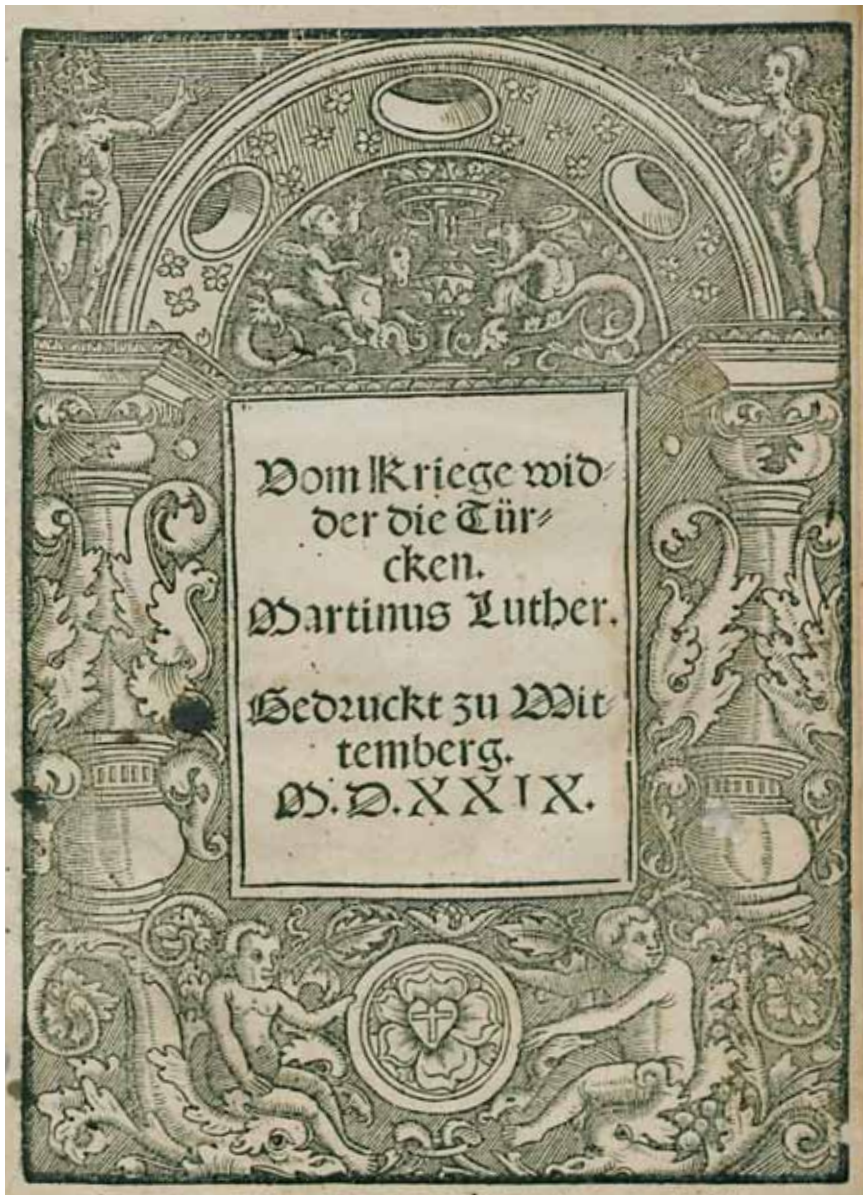 Vom Kriege wid⸗
der die Tür⸗
cken.
Martinus Luther.
Gedruckt zu Wit⸗
temberg.
M.D.XXIX.